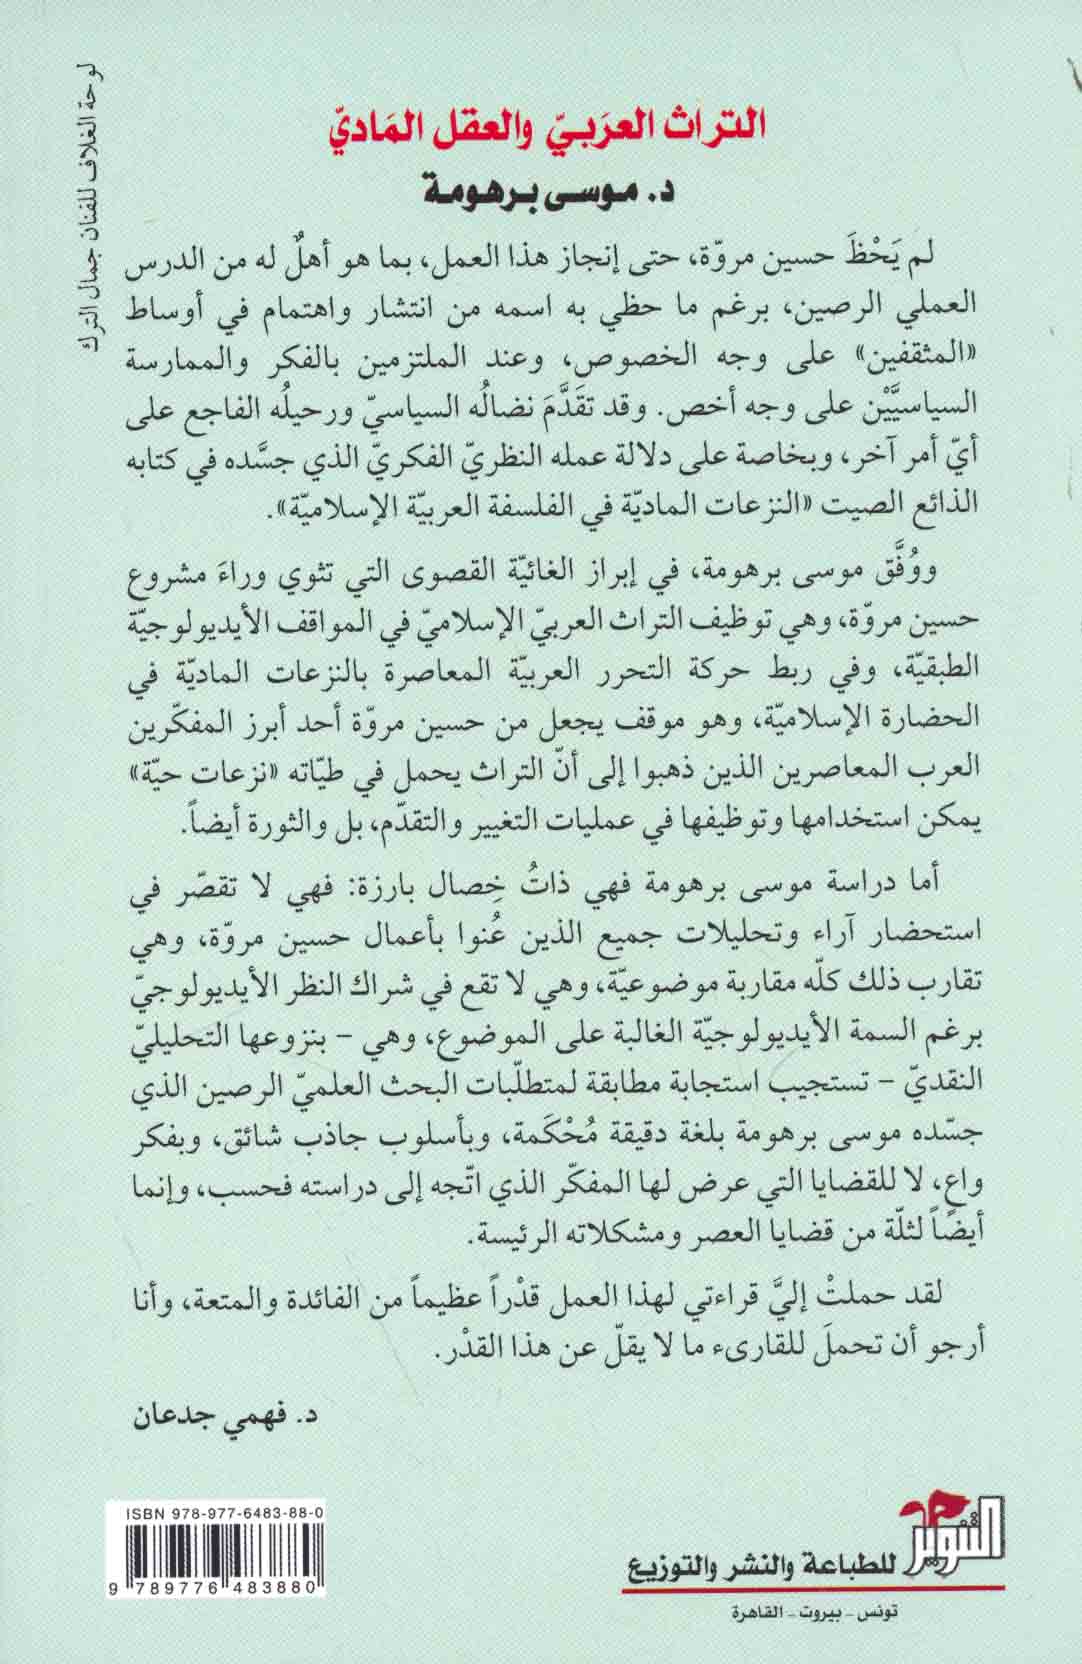 لوحة الغلاف للفنان جمال الترك
التراث العرَبيّ والعقل المَاديّ
د. موسى برهومة
لم يَحْظَ حسين مروّة، حتى إنجاز هذا العمل، بما هو أهلٌ له من الدرس
العملي الرصين، برغم ما حظي به اسمه من انتشار واهتمام في أوساط
«المثقفين» على وجه الخصوص، وعند الملتزمين بالفكر والممارسة
السياسيَّيْن على وجه أخص. وقد تقَدَّمَ نضالُه السياسيّ ورحيلُه الفاجع على
أيّ أمر آخر، وبخاصة على دلالة عمله النظريّ الفكريّ الذي جسَّده في كتابه
الذائع الصيت «النزعات الماديّة في الفلسفة العربيّة الإسلاميّة».
ووُفَّق موسى برهومة، في إبراز الغائيّة القصوى التي تثوي وراءَ مشروع
حسين مروّة، وهي توظيف التراث العربيّ الإسلاميّ في المواقف الأيديولوجيّة
الطبقيّة، وفي ربط حركة التحرر العربيّة المعاصرة بالنزعات الماديّة في
الحضارة الإسلاميّة، وهو موقف يجعل من حسين مروّة أحد أبرز المفكّرين
العرب المعاصرين الذين ذهبوا إلى أنّ التراث يحمل في طيّاته «نزعات حيّة»
يمكن استخدامها وتوظيفها في عمليات التغيير والتقدّم، بل والثورة أيضاً.
أما دراسة موسى برهومة فهي ذاتُ خِصال بارزة: فهي لا تقصّر في
استحضار آراء وتحليلات جميع الذين عُنوا بأعمال حسين مروّة، وهي
تقارب ذلك كلّه مقاربة موضوعيّة، وهي لا تقع في شراك النظر الأيديولوجيّ
برغم السمة الأيديولوجيّة الغالبة على الموضوع، وهي - بنزوعها التحليليّ
النقديّ - تستجيب استجابة مطابقة لمتطلّبات البحث العلميّ الرصين الذي
جسّده موسى برهومة بلغة دقيقة مُحْكَمة، وبأسلوب جاذب شائق، وبفكر
واعٍ، لا للقضايا التي عرض لها المفكّر الذي اتّجه إلى دراسته فحسب، وإنما
أيضاً لثلّة من قضايا العصر ومشكلاته الرئيسة.
لقد حملتْ إليَّ قراءتي لهذا العمل قدْراً عظيماً من الفائدة والمتعة، وأنا
أرجو أن تحملَ للقارىء ما لا يقلّ عن هذا القدْر.
د. فهمي جدعان
ISBN 978-977-6483-88-0
9 789776 483880
التنوير
للطباعة والنشر والتوزيع
تونس - بيروت - القاهرة